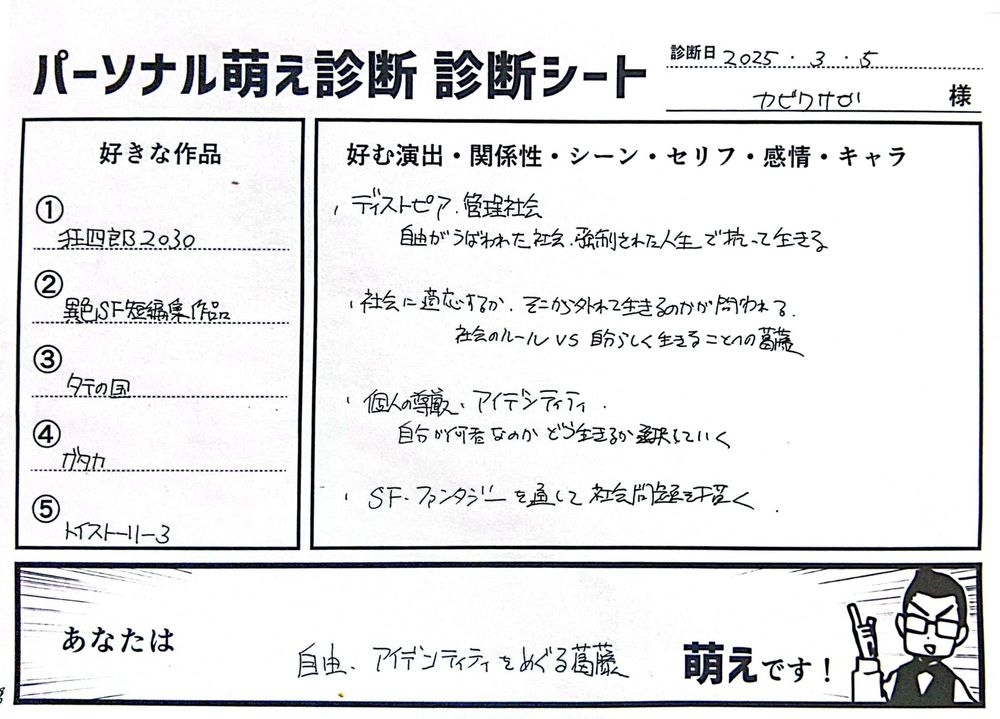 パーソナル萌え診断 診断シート
診断日 2025・3・5
カビクサい 様
好きな作品
① 狂四郎2030
② 異色SF短編集作品
③ タテの国
④ ガタカ
⑤ トイストーリー3
好む演出・関係性・シーン・セリフ・感情・キャラ
・ディストピア・管理社会
自由がうばわれた社会・強制された人生で抗って生きる
・社会に適応するか、そこから外れて生きるのかが問われる。
社会のルール VS 自分らしく生きることへの葛藤
・個人の尊厳・アイデンティティ.
自分が何者なのかどう生きるか
・SF・ファンタジーを通して社会問題を描く.
あなたは
自由・アイデンティティをめぐる葛藤
萌えです!